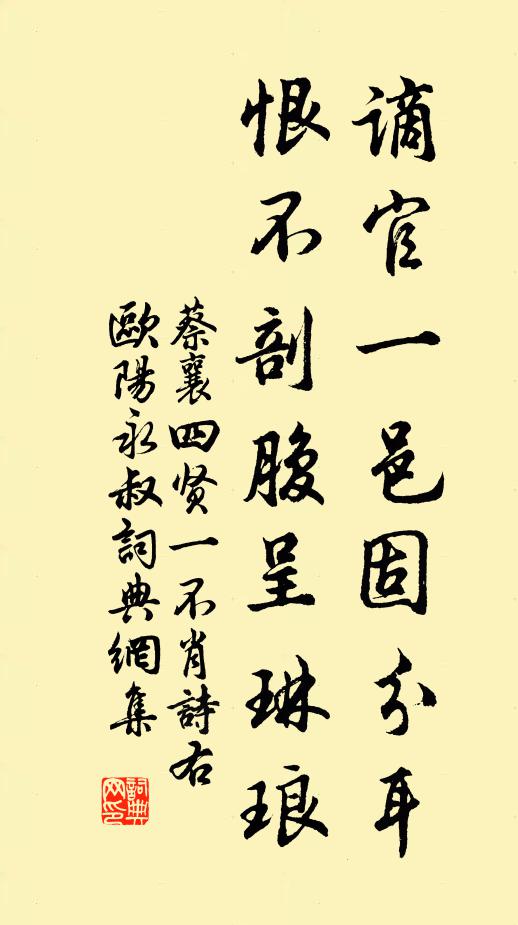 谪官一邑固分耳
恨不剖腹呈琳琅
蔡襄四贤一不肖詩右
歐陽永叔詞典網集
詞典网印